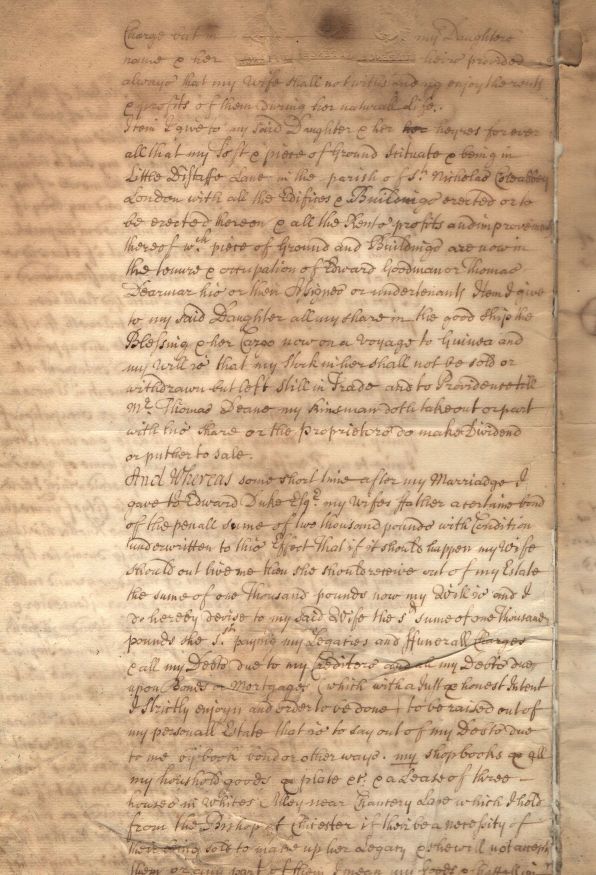 Charge but in my Daughters
name & her heirs provided
always that my Wife shall notwithstanding enjoy the rents
& profits of them during her naturall Life.
Item I give to my said Daughter & her heyres for ever
all that my Toft & piece of Ground scituate & being in
Little Distaffe Lane in the parish of St. Nicholas Coleabbey
London with all the Edifices & Buildings erected or to
be erected hereon & all the Rents profits and improvemts
thereof wch. piece of Ground and Buildings are now in
the tenure & occupation of Edward Goodman or Thomas
Dearmar his or their Assignes or undertenants Item I give
to my said Daughter all my share in the good Ship the
Blessing & her Cargo now on a voyage to Guinea and
my Will is that my Stock in her shall not be sold or
withdrawn but left still in Trade and to Providence till
Mr. Thomas Deane my Kinsman doth take out or part
with his share or the Proprietors do make Dividend
or put her to sale.
And Whereas some short time after my Marriadge I
gave to Edward Duke Esqr. my Wifes Father a certaine bond
of the penall sume of two thousand pounds with Condition
underwritten to this Effect That if it should happen my Wife
should out live me then she should receive out of my Estate
the sume of one Thousand pounds now my Will is and I
do hereby devise to my said Wife the sd. sume of one Thousand
pounds she paying my Legacies and Funerall Charges
& all my Debts due to my Creditors and all my Debts due
upon Bonds or Mortgages (which with a full & honest Intent
I Strictly enjoyn and order to be done) to be raised out of
my personall Estate that is to say out of my Debts due
to me by book bond or other ways. my shop books & all
my houshold goods & plate &c. & a Lease of three
houses in Whites Alley near Chancery Lane which I hold
from the Bishop of Chicester if there be a necessity of
their being sold to make up her Legacy & she will not accept
them or any part of them I mean my Goods &